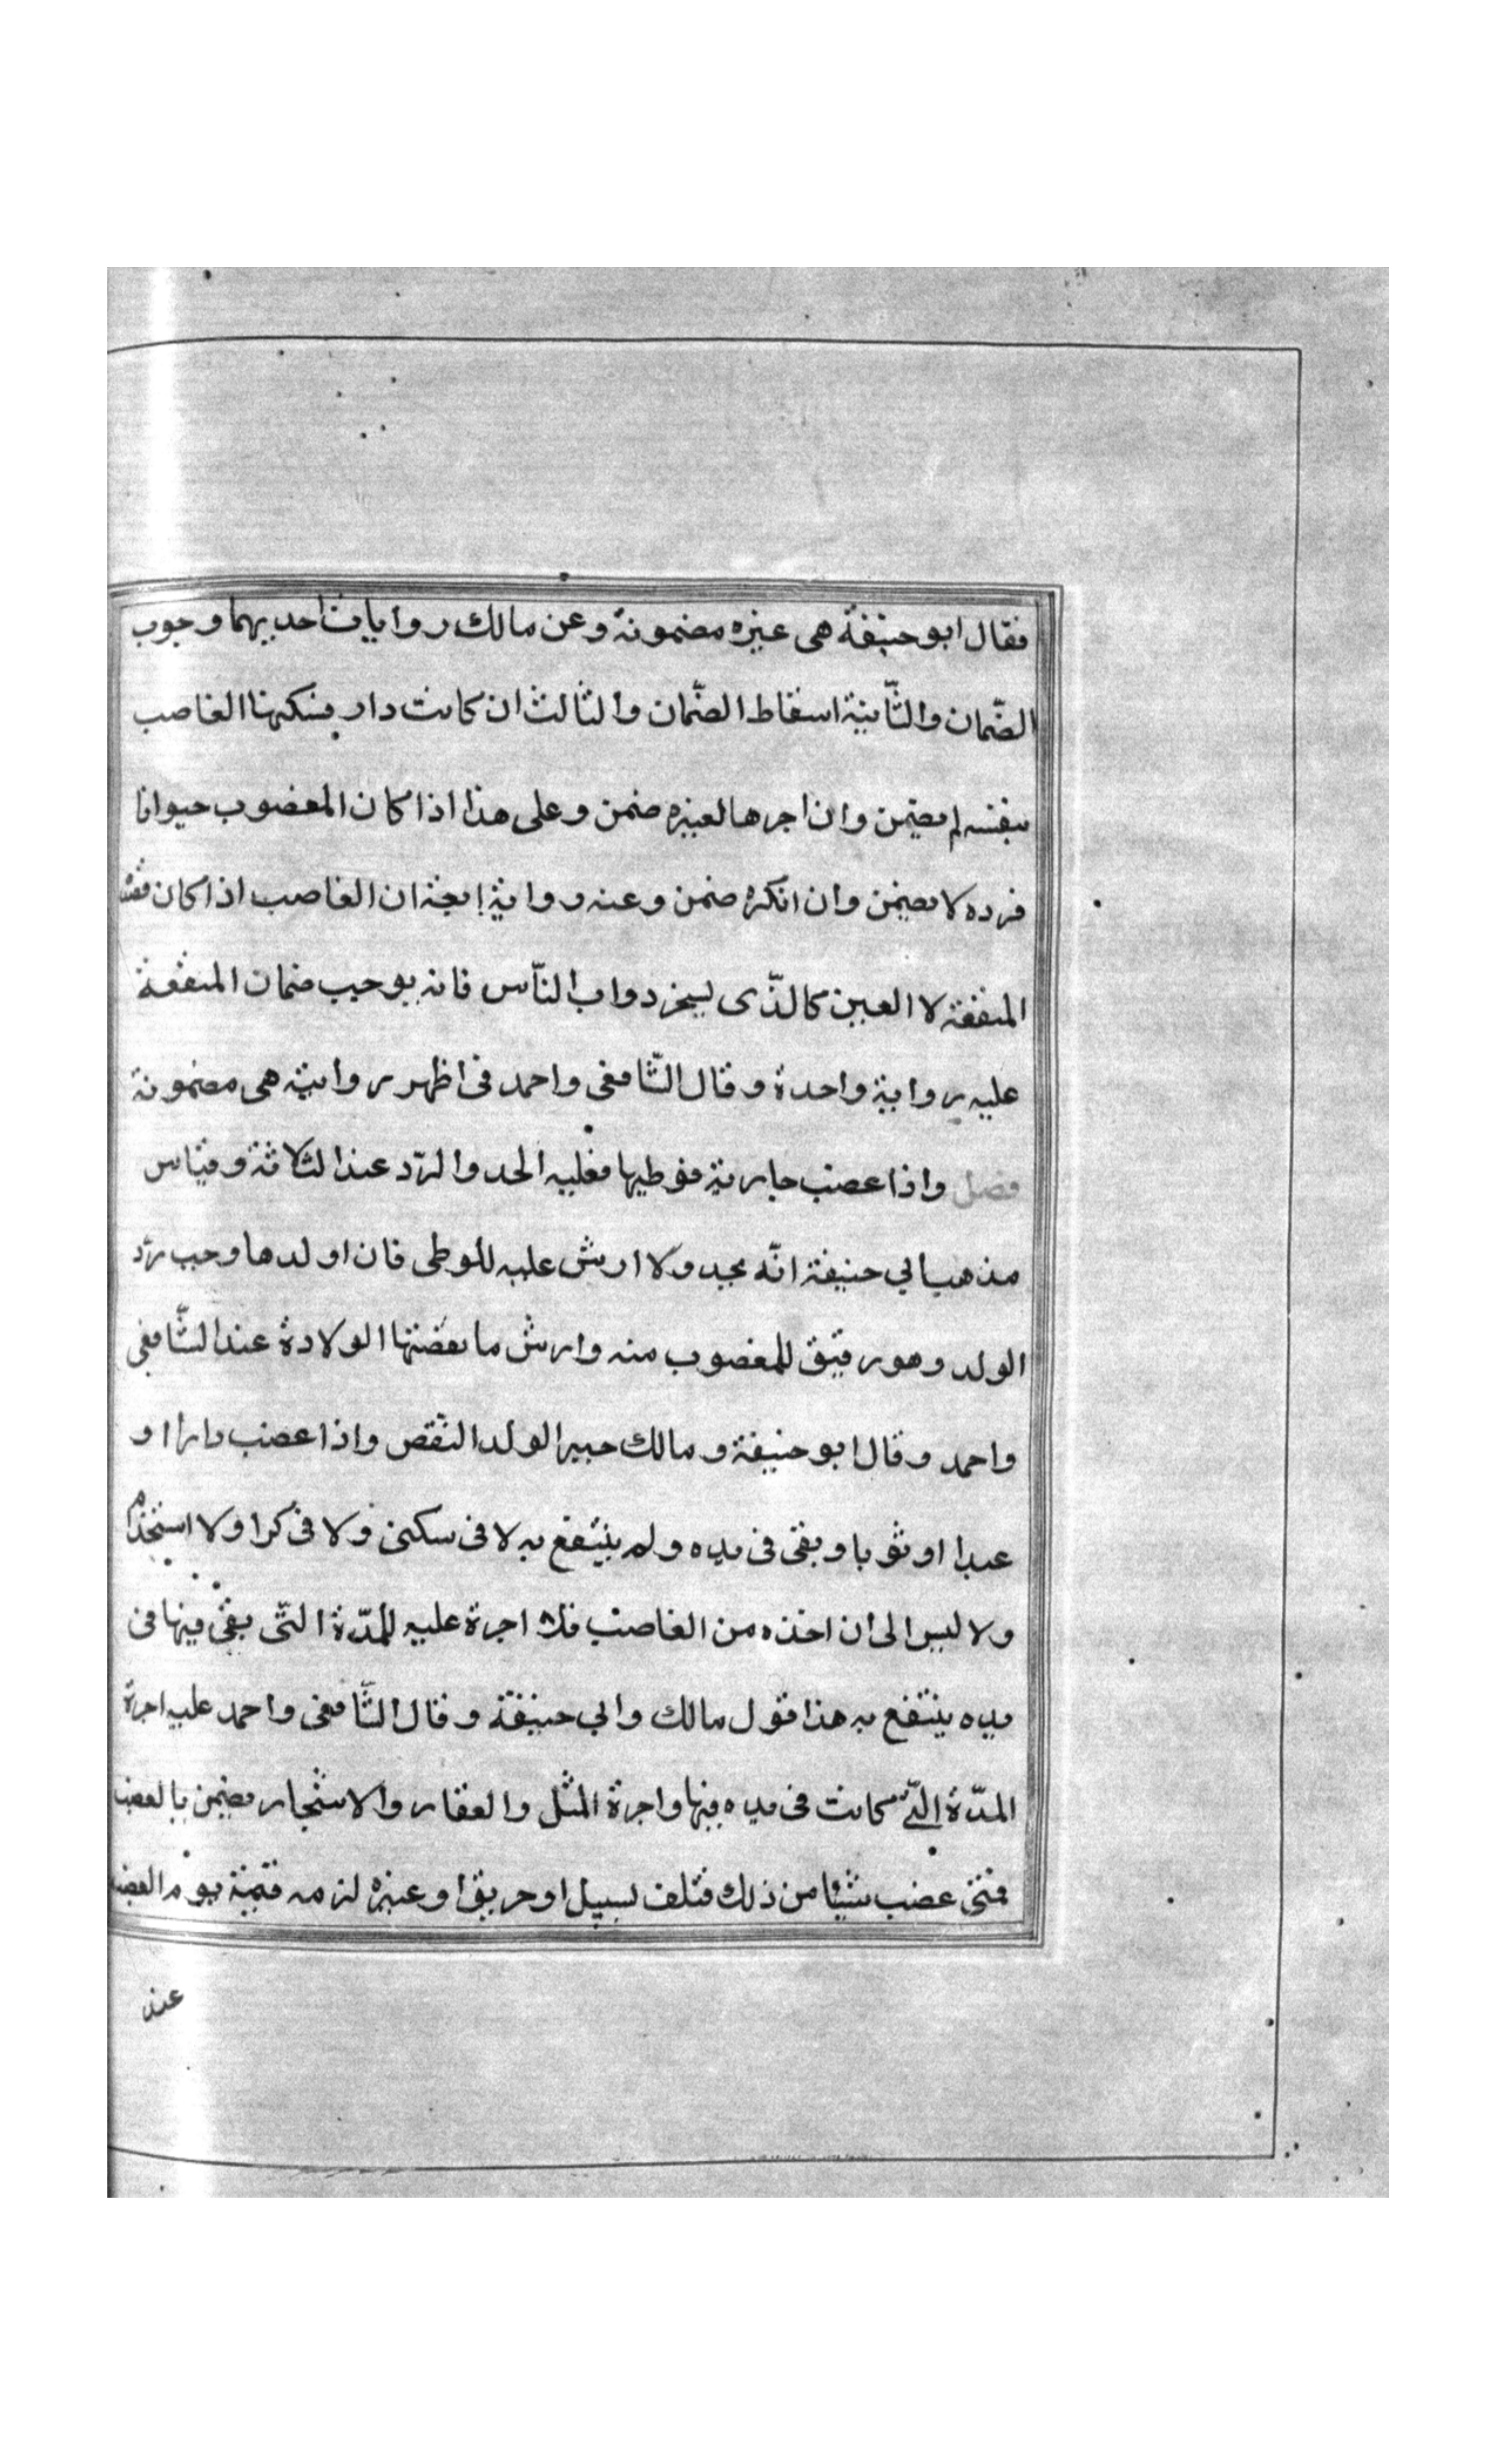 فقال ابو حنيفة هى غيره مضمونة وعن مالك روايات احديهما وجوب
الضّمان والثّانية اسقاط الضّمان والثالث ان كانت دار فسكنها الغاصب
بنفسه لم يضمن وان اجرها لغيره ضمن وعلى هذا اذا كان المغصوب حيوانا
فرده لا يضمن وان انكره ضمن وعنه رواية ان الغاصب اذا كان
المنفعة لا العين كالذّى يسخر دواب النّاس فانه يوجب ضمان المنفعة
عليه رواية واحدة وقال الشّافعى واحمد فى اظهر روايتيه هى مضمونة
فصل واذا غصب جارية فوطيها فعليه الحد والردّ عند الثلاثة وقياس
مذهب ابي حنيفة انّه يحد ولا ارش عليه للوطى فان اولدها وجب ردّ
الولد وهو رقيق للمغصوب منه وارش ما نقصتها الولادة عند الشّافعى
واحمد وقال ابو حنيفة ومالك جبير الولد النقص واذا غصب دارا او
عبدا او ثوبا وبقى فى يده ولم ينتفع به لا فى سكنى ولا فى كرا ولا استخدام
ولا لبس الى ان اخذه من الغاصب فلا اجرة عليه للمدّة التّى بقى فيها فى
يده ينتفع به هذا قول مالك وابي حنيفة وقال الشّافعى واحمد عليه اجرة
المدّة الّتى كانت فى يده فيها واجرة المثل والعقار والاشجار يضمن بالغصب
فمتى غصب شيئا من ذلك فتلف بسيل او حريق او غيره لزمه قيمته يوم الغصب
عند